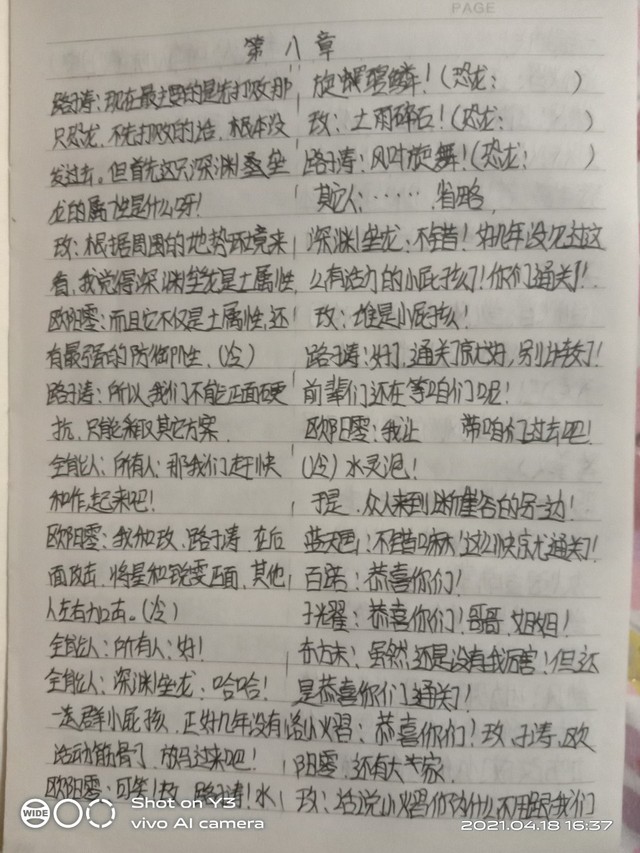 PAGE
第八章
路子涛：现在最主要的是先打败那
只恐龙，不先打败的话，根本没
发过去。但首先这只深渊叠坐
龙的属性是什么呀！
玫：根据周围的地势环境来
看，我觉得深渊坐龙是土属性
欧阳零：而且它不仅是土属性，还
有最强的防御性。（冷）
路子涛：所以，我们不能正面硬
抗，只能采取其它方案
全能人：所有人：那我们赶快
和作起来吧！
欧阳零：我和玫、路子涛 在后
面攻击，将星和锐雯正面，其他
人左右加击。（冷）
全能人：所有人：好！
全能人：深渊坐龙：哈哈！
一逃群小屁孩，正好几年没有
活动筋骨了，放马过来吧！
欧阳零：可笑！玫、路子涛！水
旋 鳞！（恐龙： ）
玫：土雨碎石！（恐龙： ）
路子涛：风叶旋舞！（恐龙： ）
其它人：……省略
深渊坐龙：不错！好几年没见过这
么有活力的小屁孩了！你们通关了！
玫：谁是小屁孩！
路子涛：好了，通关了就好，别计较了！
前辈们还在等咱们呢！
欧阳零：我让 带咱们过去吧！
（冷）水灵泡！
于是，众人来到断崖谷的另一边！
蓝天画：不错嘛！这么快就通关了！
百诺：恭喜你们！
子光耀：恭喜你们！哥哥、姐姐！
东方末：虽然还是没有我厉害！但还
是恭喜你们通关了！
洛小熠：恭喜你们！玫、子涛、欧
阳零，还有大家
玫：话说小熠你为什么不用跟我们
WIDE
Shot on Y3
vivo AI camera
2021.04.18 16:37